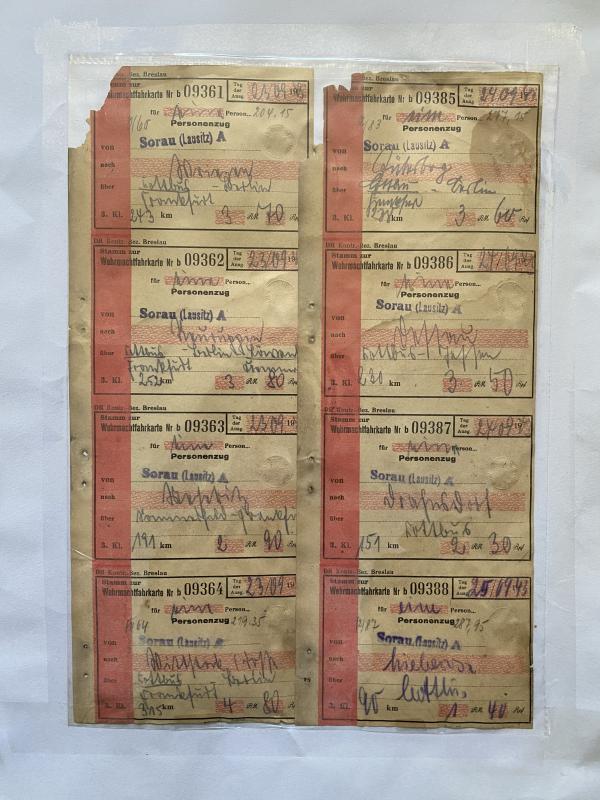 Bez. Breslau
Stamm zur
Wehrmachtfahrkarte Nr b 09361
Tag der Ausg.
für Person... 204.15
Personenzug
von Sorau (Lausitz) A
nach
über Cottbus - Berlin
Frankfurt
3. Kl. 243 km 3 RM 70
DR Kontr. Bez. Breslau
Stamm zur
Wehrmachtfahrkarte Nr b 09362
Tag der Ausg. 23/09 19
für eine Person...
Personenzug
von Sorau (Lausitz) A
nach
über Cottbus - Berlin
Frankfurt
3. Kl. 252 km 3 RM 80 Rpf
DR Kontr. Bez. Breslau
Stamm zur
Wehrmachtfahrkarte Nr b 09363
Tag der Ausg. 23/09 19
für eine Person...
Personenzug
von Sorau (Lausitz) A
nach
über Sommerfeld - Frankfurt
3. Kl. 191 km 2 RM 90 Rpf
DR Kontr. Bez. Breslau
Stamm zur
Wehrmachtfahrkarte Nr b 09364
Tag der Ausg. 23/09 19
für eine Person...
Personenzug 219.35
von Sorau (Lausitz) A
nach
über Cottbus - Berlin
Frankfurt
3. Kl. 315 km 4 RM 80
Bez. Breslau
Stamm zur
Wehrmachtfahrkarte Nr b 09385
Tag der Ausg. 24/09/43
für eine Person... 247.15
Personenzug
von Sorau (Lausitz) A
nach
über - Berlin
3. Kl. km 3 RM 60 Rpf
DR Kontr. Bez. Breslau
Stamm zur
Wehrmachtfahrkarte Nr b 09386
Tag der Ausg. 24/09/43
für eine Person...
Personenzug
von Sorau (Lausitz) A
nach Dessau
über Cottbus - Jessen
3. Kl. 230 km 3 RM 50 Rpf
DR Kontr. Bez. Breslau
Stamm zur
Wehrmachtfahrkarte Nr b 09387
Tag der Ausg. 24/09 19
für eine Person...
Personenzug
von Sorau (Lausitz) A
nach Drahnsdorf
über Cottbus
3. Kl. 151 km 2 RM 30 Rpf
DR Kontr. Bez. Breslau
Stamm zur
Wehrmachtfahrkarte Nr b 09388
Tag der Ausg. 25/09/43
für eine Person...
Personenzug 287,95
von Sorau (Lausitz) A
nach
über Cottbus
3. Kl. 90 km 1 RM 40 Rpf